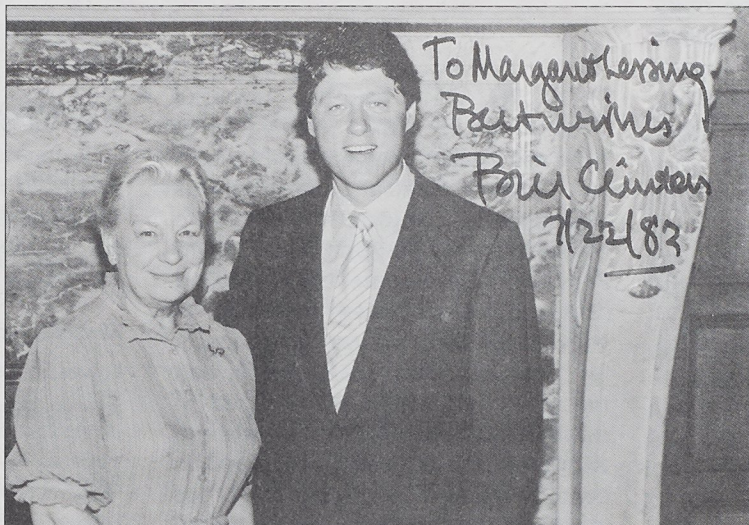 To Margaret Lessing
Best wishes
Bill Clinton
7/22/82